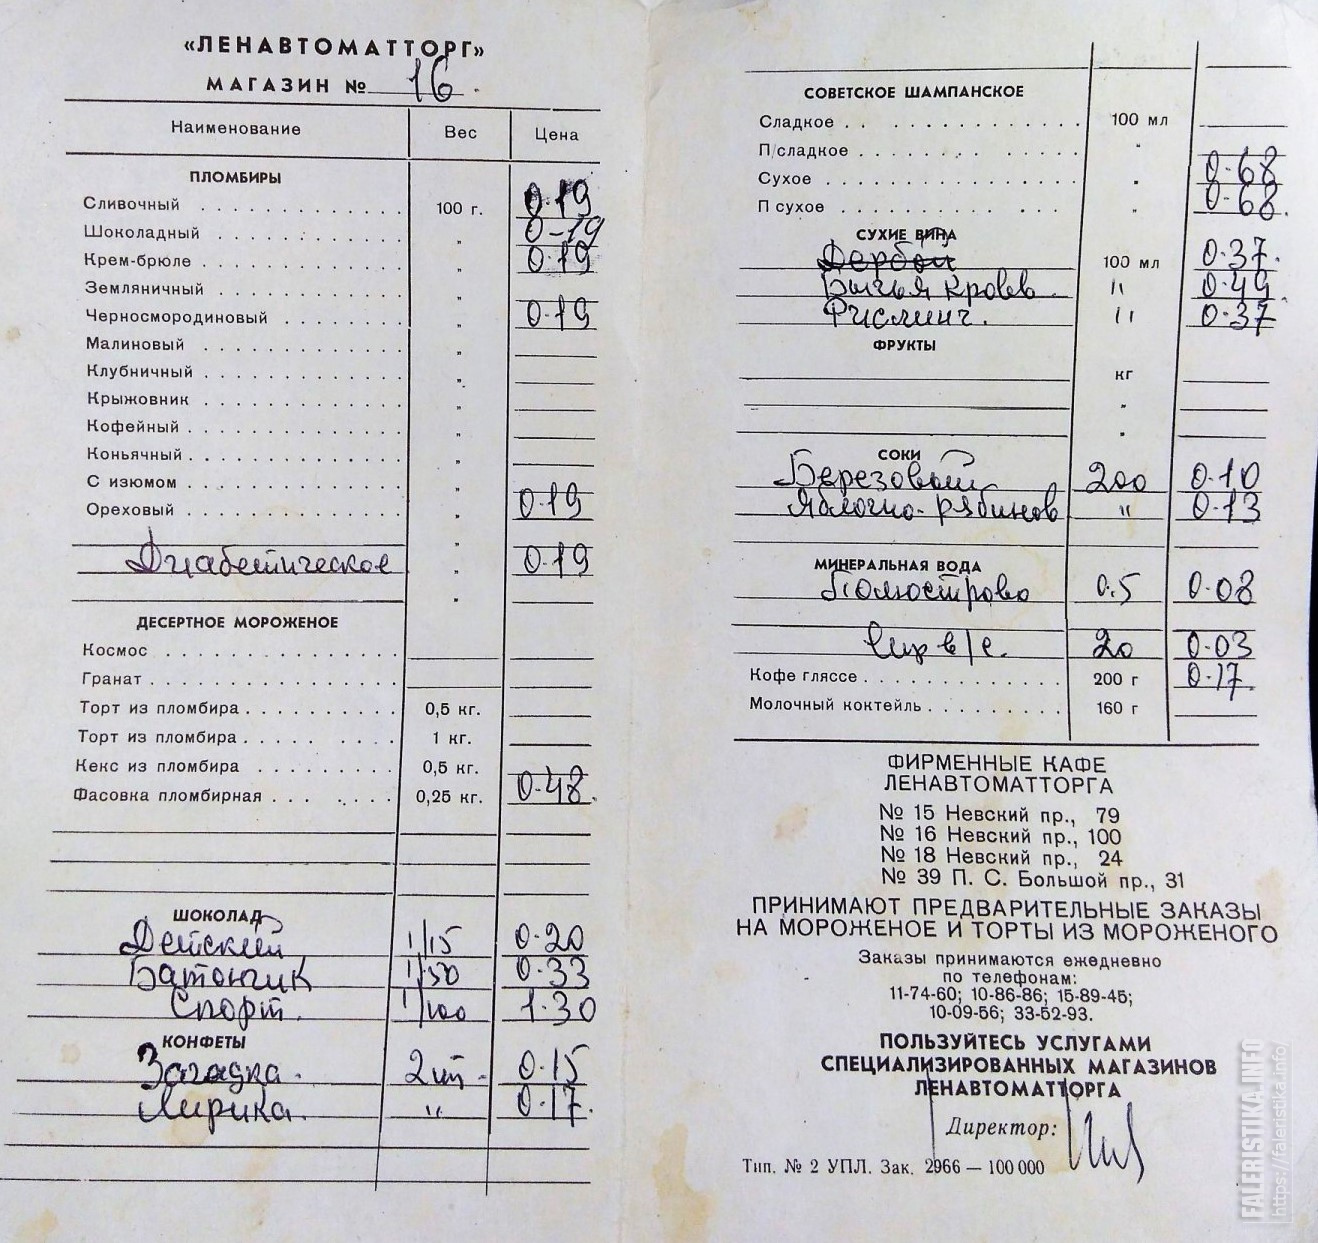 «ЛЕНАВТОМАТТОРГ»
МАГАЗИН № 16.
Наименование Вес Цена
ПЛОМБИРЫ
Сливочный . . . . . . . . . . . 100 г. 0-19
Шоколадный . . . . . . . . . . „ 0-19
Крем-брюле . . . . . . . . . . . „ 0-19
Земляничный . . . . . . . . . . „
Черносмородиновый . . . . . . . „ 0-19
Малиновый . . . . . . . . . . . „
Клубничный . . . . . . . . . . . „
Крыжовник . . . . . . . . . . . „
Кофейный . . . . . . . . . . . . „
Коньячный . . . . . . . . . . . „
С изюмом . . . . . . . . . . . . „
Ореховый . . . . . . . . . . . . „ 0-19
„
Диабетическое „ 0-19
„
ДЕСЕРТНОЕ МОРОЖЕНОЕ
Космос . . . . . . . . . . . . .
Гранат . . . . . . . . . . . . .
Торт из пломбира . . . . . . . . . 0,5 кг.
Торт из пломбира . . . . . . . . 1 кг.
Кекс из пломбира . . . . . . . . 0,5 кг.
Фасовка пломбирная . . . . . . . 0,25 кг. 0-48.
ШОКОЛАД
Детский 1/15 0-20
Батончик 1/30 0-33
Спорт. 1/100 1-30
КОНФЕТЫ
Загадка. 2 шт- 0-15
Лирика. " 0-17.
СОВЕТСКОЕ ШАМПАНСКОЕ
Сладкое . . . . . . . . . . . . . 100 мл
П/сладкое . . . . . . . . . . . . „
Сухое . . . . . . . . . . . . . . „ 0-68
П сухое . . . . . . . . . . . . . „ 0-68.
СУХИЕ ВИНА
100 мл 0-37.
Бычья кровь. " 0-49.
Рислинг. " 0-37
ФРУКТЫ
кг
„
„
СОКИ
Березовый 200 0-10
Яблочно-рябинов " 0-13
МИНЕРАЛЬНАЯ ВОДА
Полюстрово 0.5 0-08
Сир в/с. 20 0-03
Кофе гляссе . . . . . . . . . . . 200 г 0-17.
Молочный коктейль . . . . . . . . . 160 г
ФИРМЕННЫЕ КАФЕ
ЛЕНАВТОМАТТОРГА
№ 15 Невский пр., 79
№ 16 Невский пр., 100
№ 18 Невский пр., 24
№ 39 П. С. Большой пр., 31
ПРИНИМАЮТ ПРЕДВАРИТЕЛЬНЫЕ ЗАКАЗЫ
НА МОРОЖЕНОЕ И ТОРТЫ ИЗ МОРОЖЕНОГО
Заказы принимаются ежедневно
по телефонам:
11-74-60; 10-86-86; 15-89-45;
10-09-56; 33-52-93.
ПОЛЬЗУЙТЕСЬ УСЛУГАМИ
СПЕЦИАЛИЗИРОВАННЫХ МАГАЗИНОВ
ЛЕНАВТОМАТТОРГА
Директор:
Тип. № 2 УПЛ. Зак. 2966 — 100 000
FALERISTIKA.INFO
https://faleristika.info